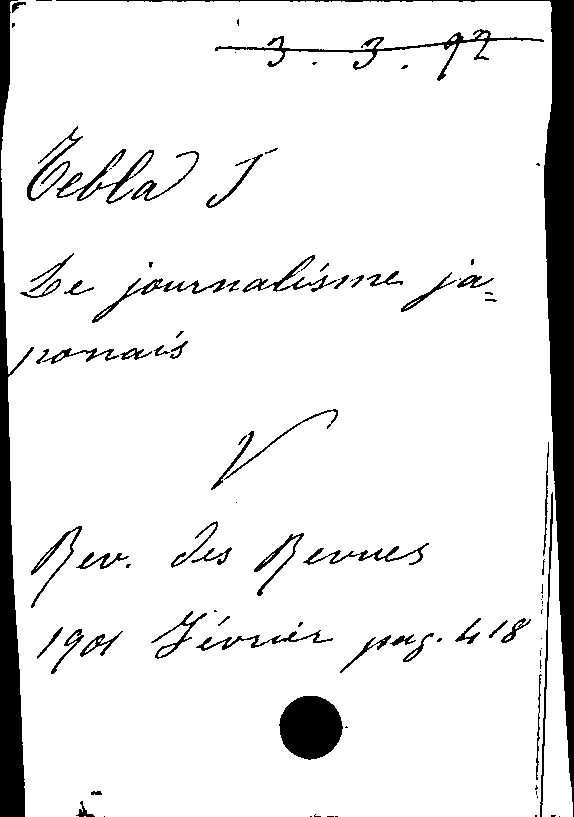 3. 3. 92
Tebla J
Le journalisme ja=
ponais
V
Rev. des Revues
1901 Février pag. 418